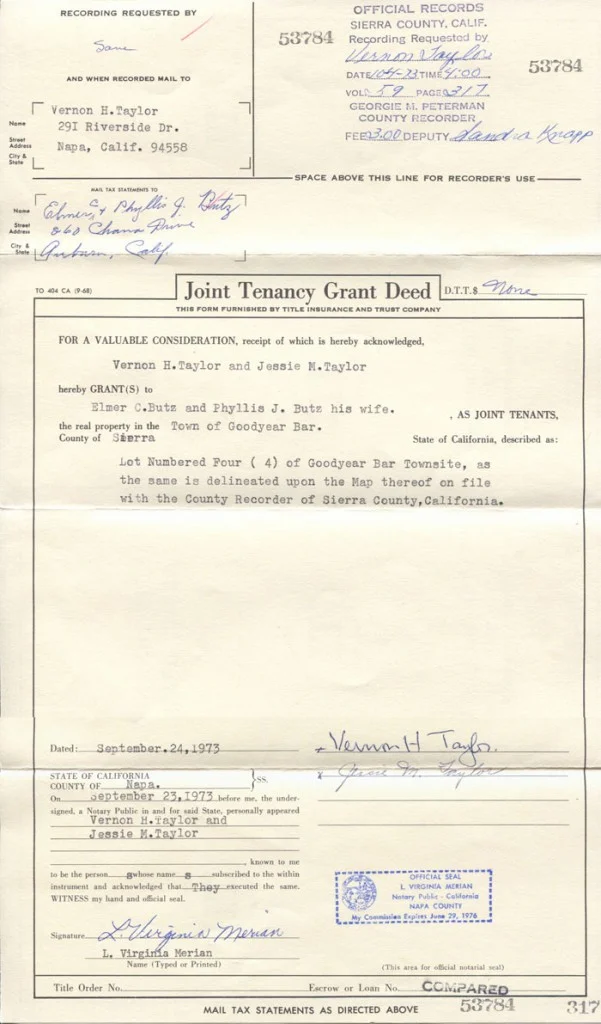 RECORDING REQUESTED BY
Same
AND WHEN RECORDED MAIL TO
Name
Street Address
City & State
Vernon H.Taylor
29I Riverside Dr.
Napa, Calif. 94558
53784
OFFICIAL RECORDS
SIERRA COUNTY, CALIF.
Recording Requested by
Vernon Taylor
DATE 10-4-73 TIME 4:00
VOL. 59 PAGE 317
GEORGIE M. PETERMAN
COUNTY RECORDER
FEE 3.00 DEPUTY Sandra Knapp
53784
SPACE ABOVE THIS LINE FOR RECORDER'S USE
MAIL TAX STATEMENTS TO
Name Elmer C. & Phyllis J. Butz
Street Address 860 Drive
City & State Auburn, Calif.
TO 404 CA (9-68)
Joint Tenancy Grant Deed
D.T.T.$ None
THIS FORM FURNISHED BY TITLE INSURANCE AND TRUST COMPANY
FOR A VALUABLE CONSIDERATION, receipt of which is hereby acknowledged,
Vernon H.Taylor and Jessie M.Taylor
hereby GRANT(S) to
Elmer C.Butz and Phyllis J. Butz his wife.
, AS JOINT TENANTS,
the real property in the Town of Goodyear Bar.
County of Sierra State of California, described as:
Lot Numbered Four ( 4) of Goodyear Bar Townsite, as
the same is delineated upon the Map thereof on file
with the County Recorder of Sierra County,California.
Dated: September.24,1973
Vernon H Taylor.
x Jessie M. Taylor
STATE OF CALIFORNIA
COUNTY OF Napa. }SS.
On September 23,1973 before me, the under-
signed, a Notary Public in and for said State, personally appeared
Vernon H.Taylor and
Jessie M.Taylor
, known to me
to be the person s whose name s subscribed to the within
instrument and acknowledged that They executed the same.
WITNESS my hand and official seal.
Signature L. Virginia Merian
L. Virginia Merian
Name (Typed or Printed)
OFFICIAL SEAL
L. VIRGINIA MERIAN
Notary Public - California
NAPA COUNTY
My Commission Expires June 29, 1976
(This area for official notarial seal)
Title Order No. Escrow or Loan No. COMPARED
MAIL TAX STATEMENTS AS DIRECTED ABOVE 53784 317